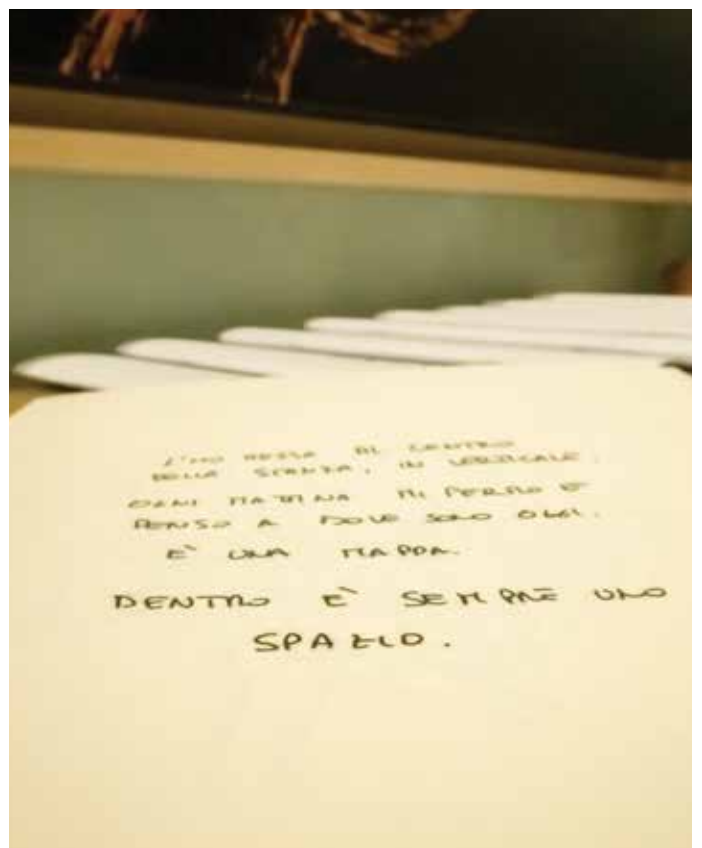 L'HO MESSA AL CENTRO
DELLA STANZA, IN VERTICALE.
OGNI MATTINA MI FERMO E
PENSO A DOVE SONO OGGI.
E' UNA MAPPA.
DENTRO E' SEMPRE UNO
SPAZIO.